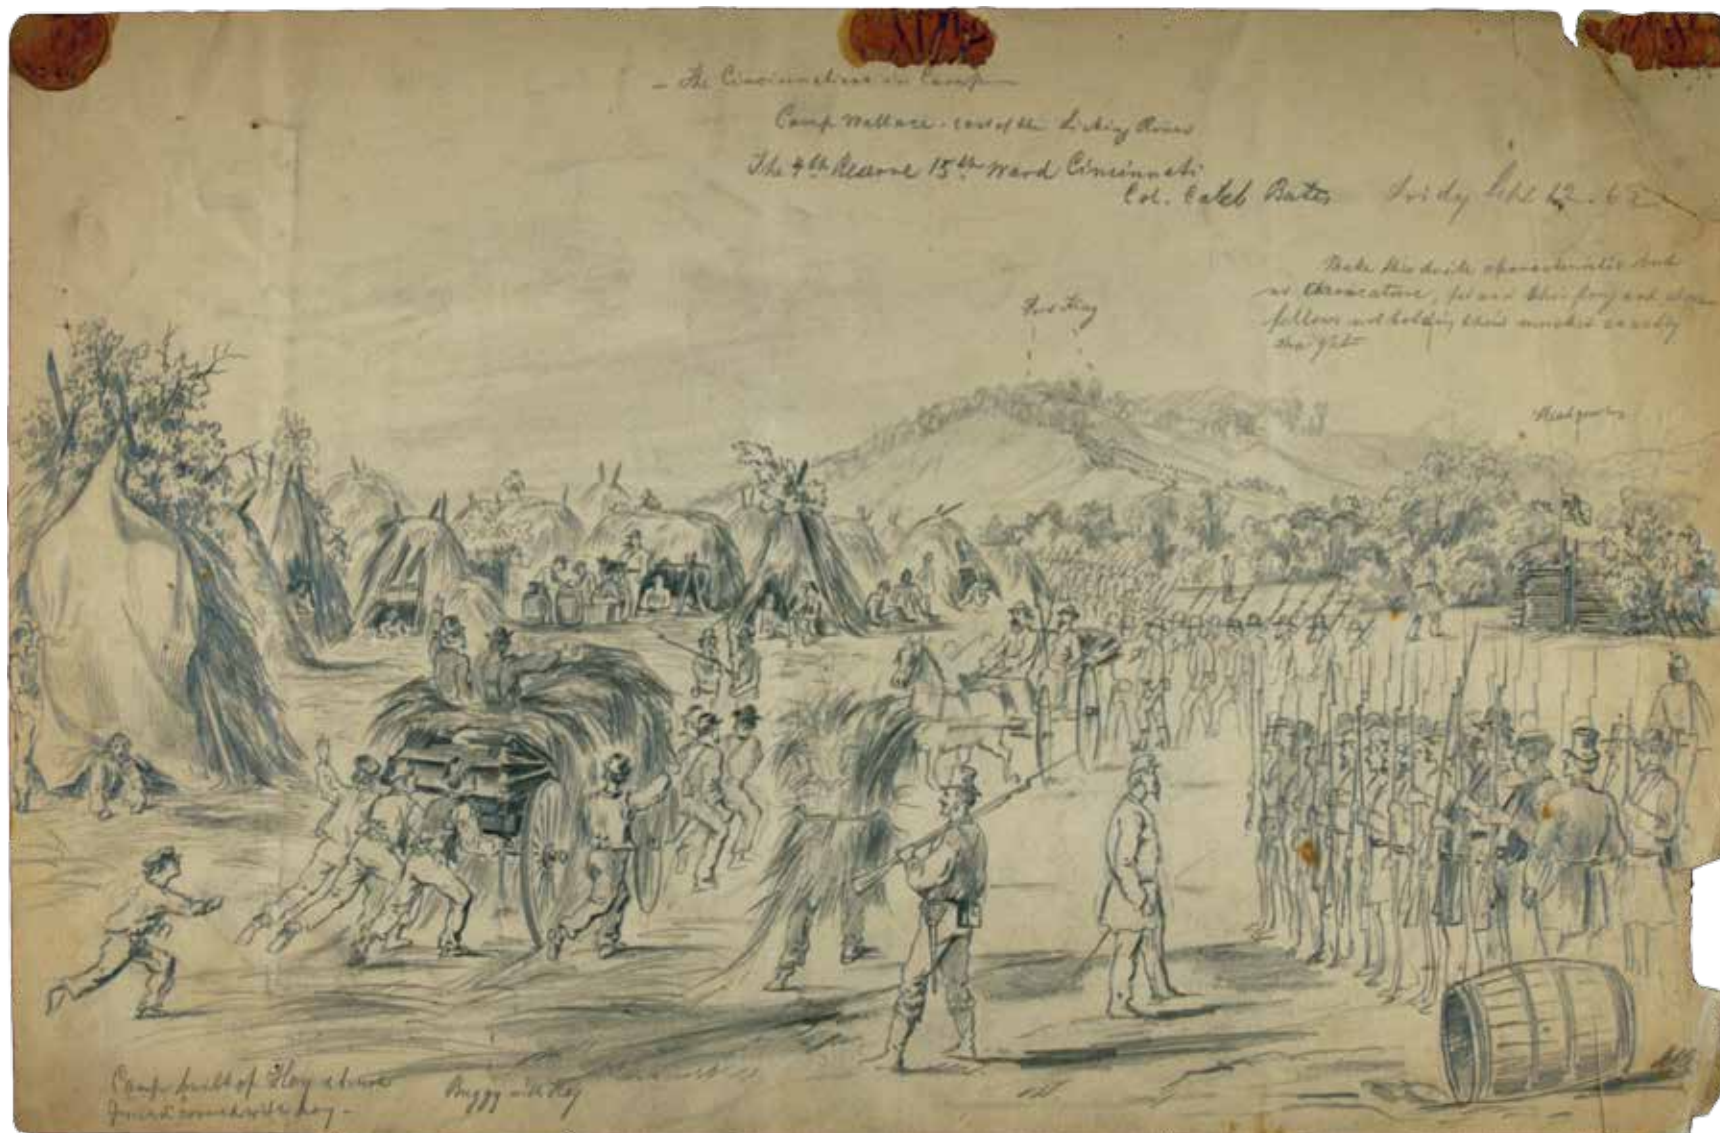 - The Cincinnatians in Camp -
Camp Wallace - east of the Licking River
The 4th Reserve 15th Ward Cincinnati
Col. Caleb Bates Friday Sept 12 - 62
Make this quite characteristic but
no characature, for
fellows not holding their muskets exactly
straight
Fort
Headquarters
Camp built of Hay & straw
covered with hay -
Buggy with Hay